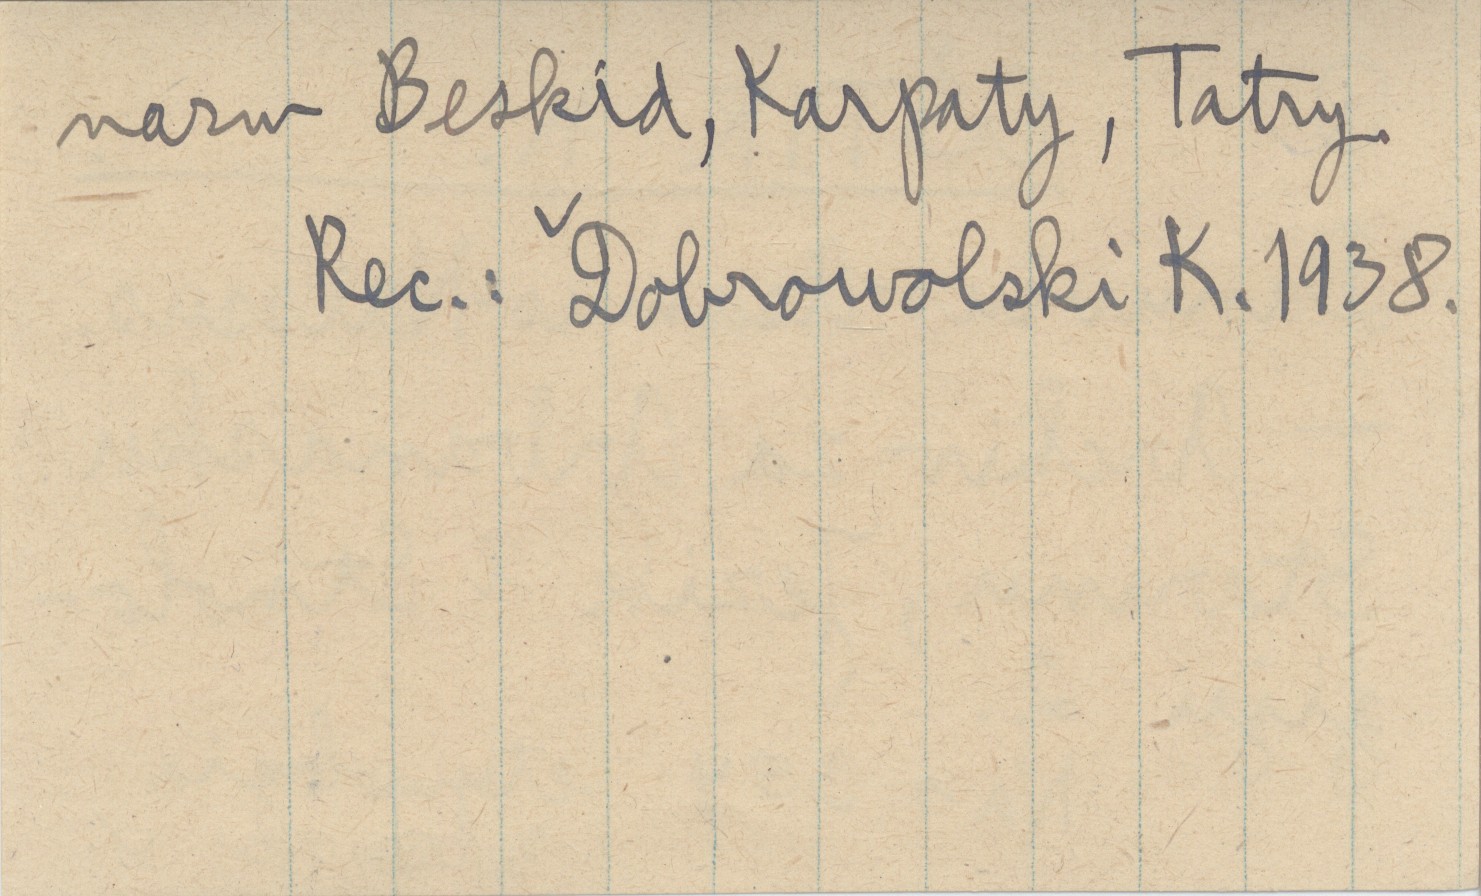 nazw Beskid, Karpaty, Tatry.
Rec.: ˅Dobrowolski K. 1938.